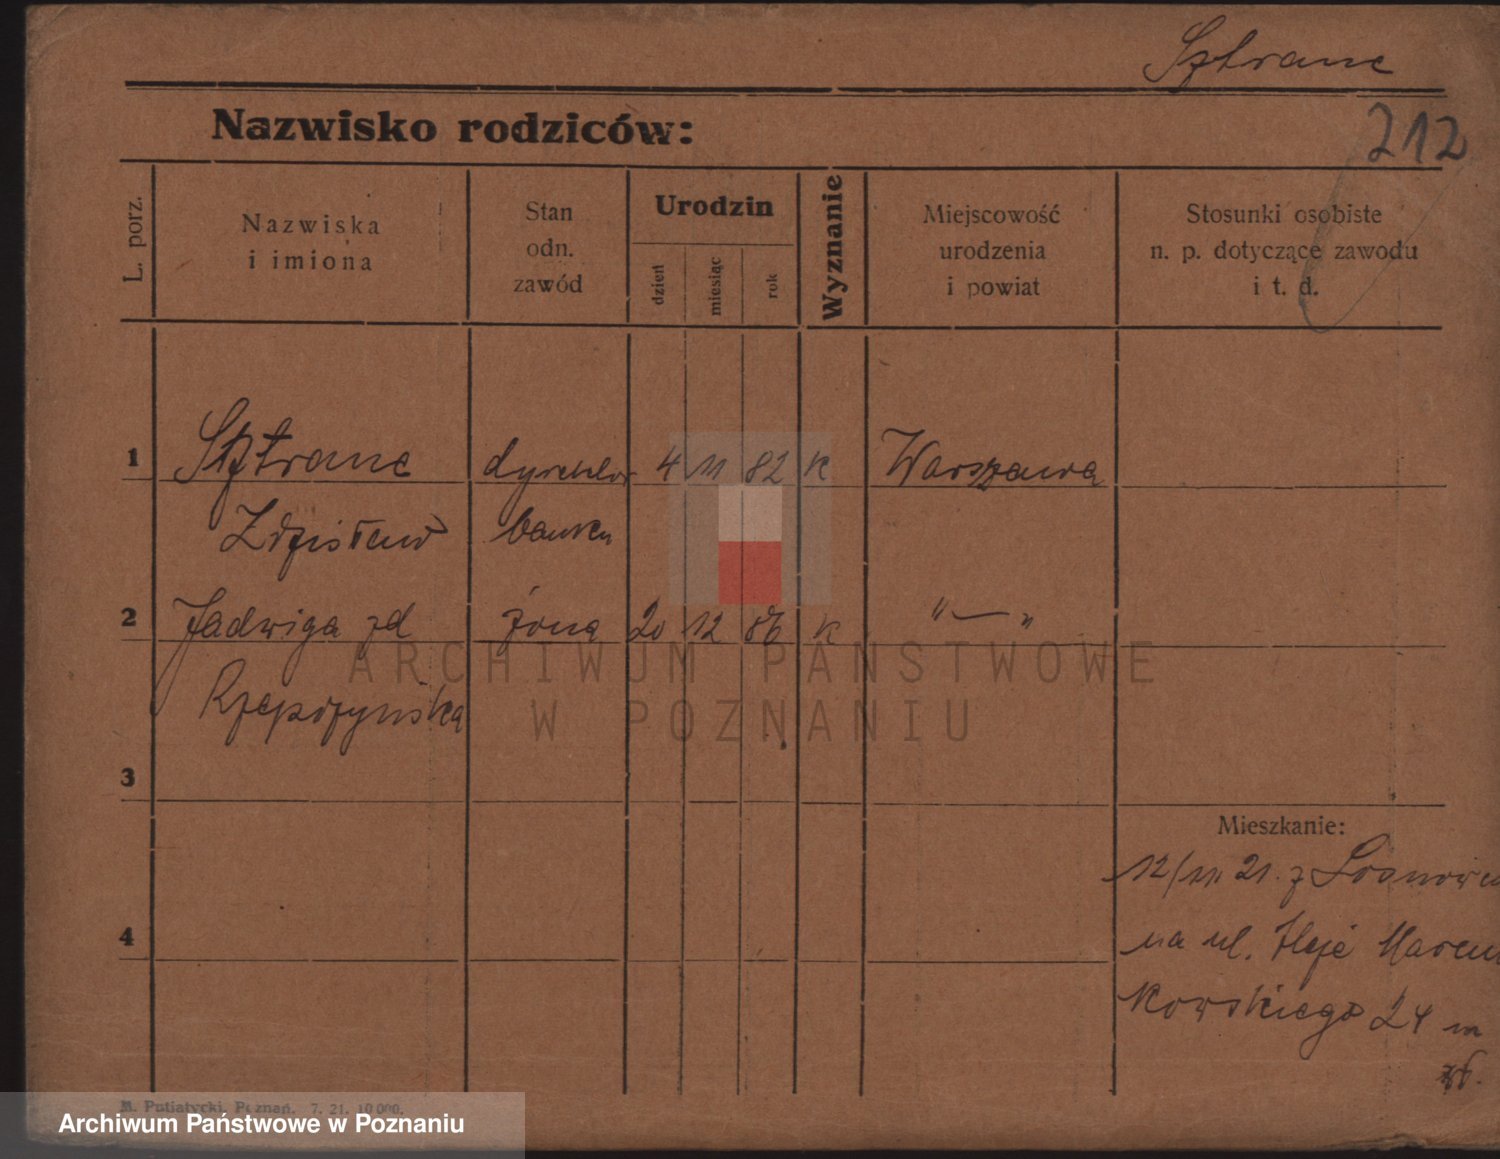 Sztranc
Nazwisko rodziców:
212
L. porz.
Nazwiska
i imiona
Stan
odn.
zawód
Urodzin
dzień
miesiąc
rok
Wyznanie
Miejscowość
urodzenia
i powiat
Stosunki osobiste
n. p. dotyczące zawodu
i t. d.
1 Sztranc dyrektor 4 11 82 K Warszawa
Zdzisław banku
2 Jadwiga zd żona 20 12 86 K " — "
Rzepdzyńska
3
Mieszkanie:
12/ 21. z Sosnowca
4
na ul. Aleje Marcin
kowskiego 24 m
M. Putiatycki, Poznań. 7. 21. 10 000.
ARCHIWUM PAŃSTWOWE
W POZNANIU
Archiwum Państwowe w Poznaniu